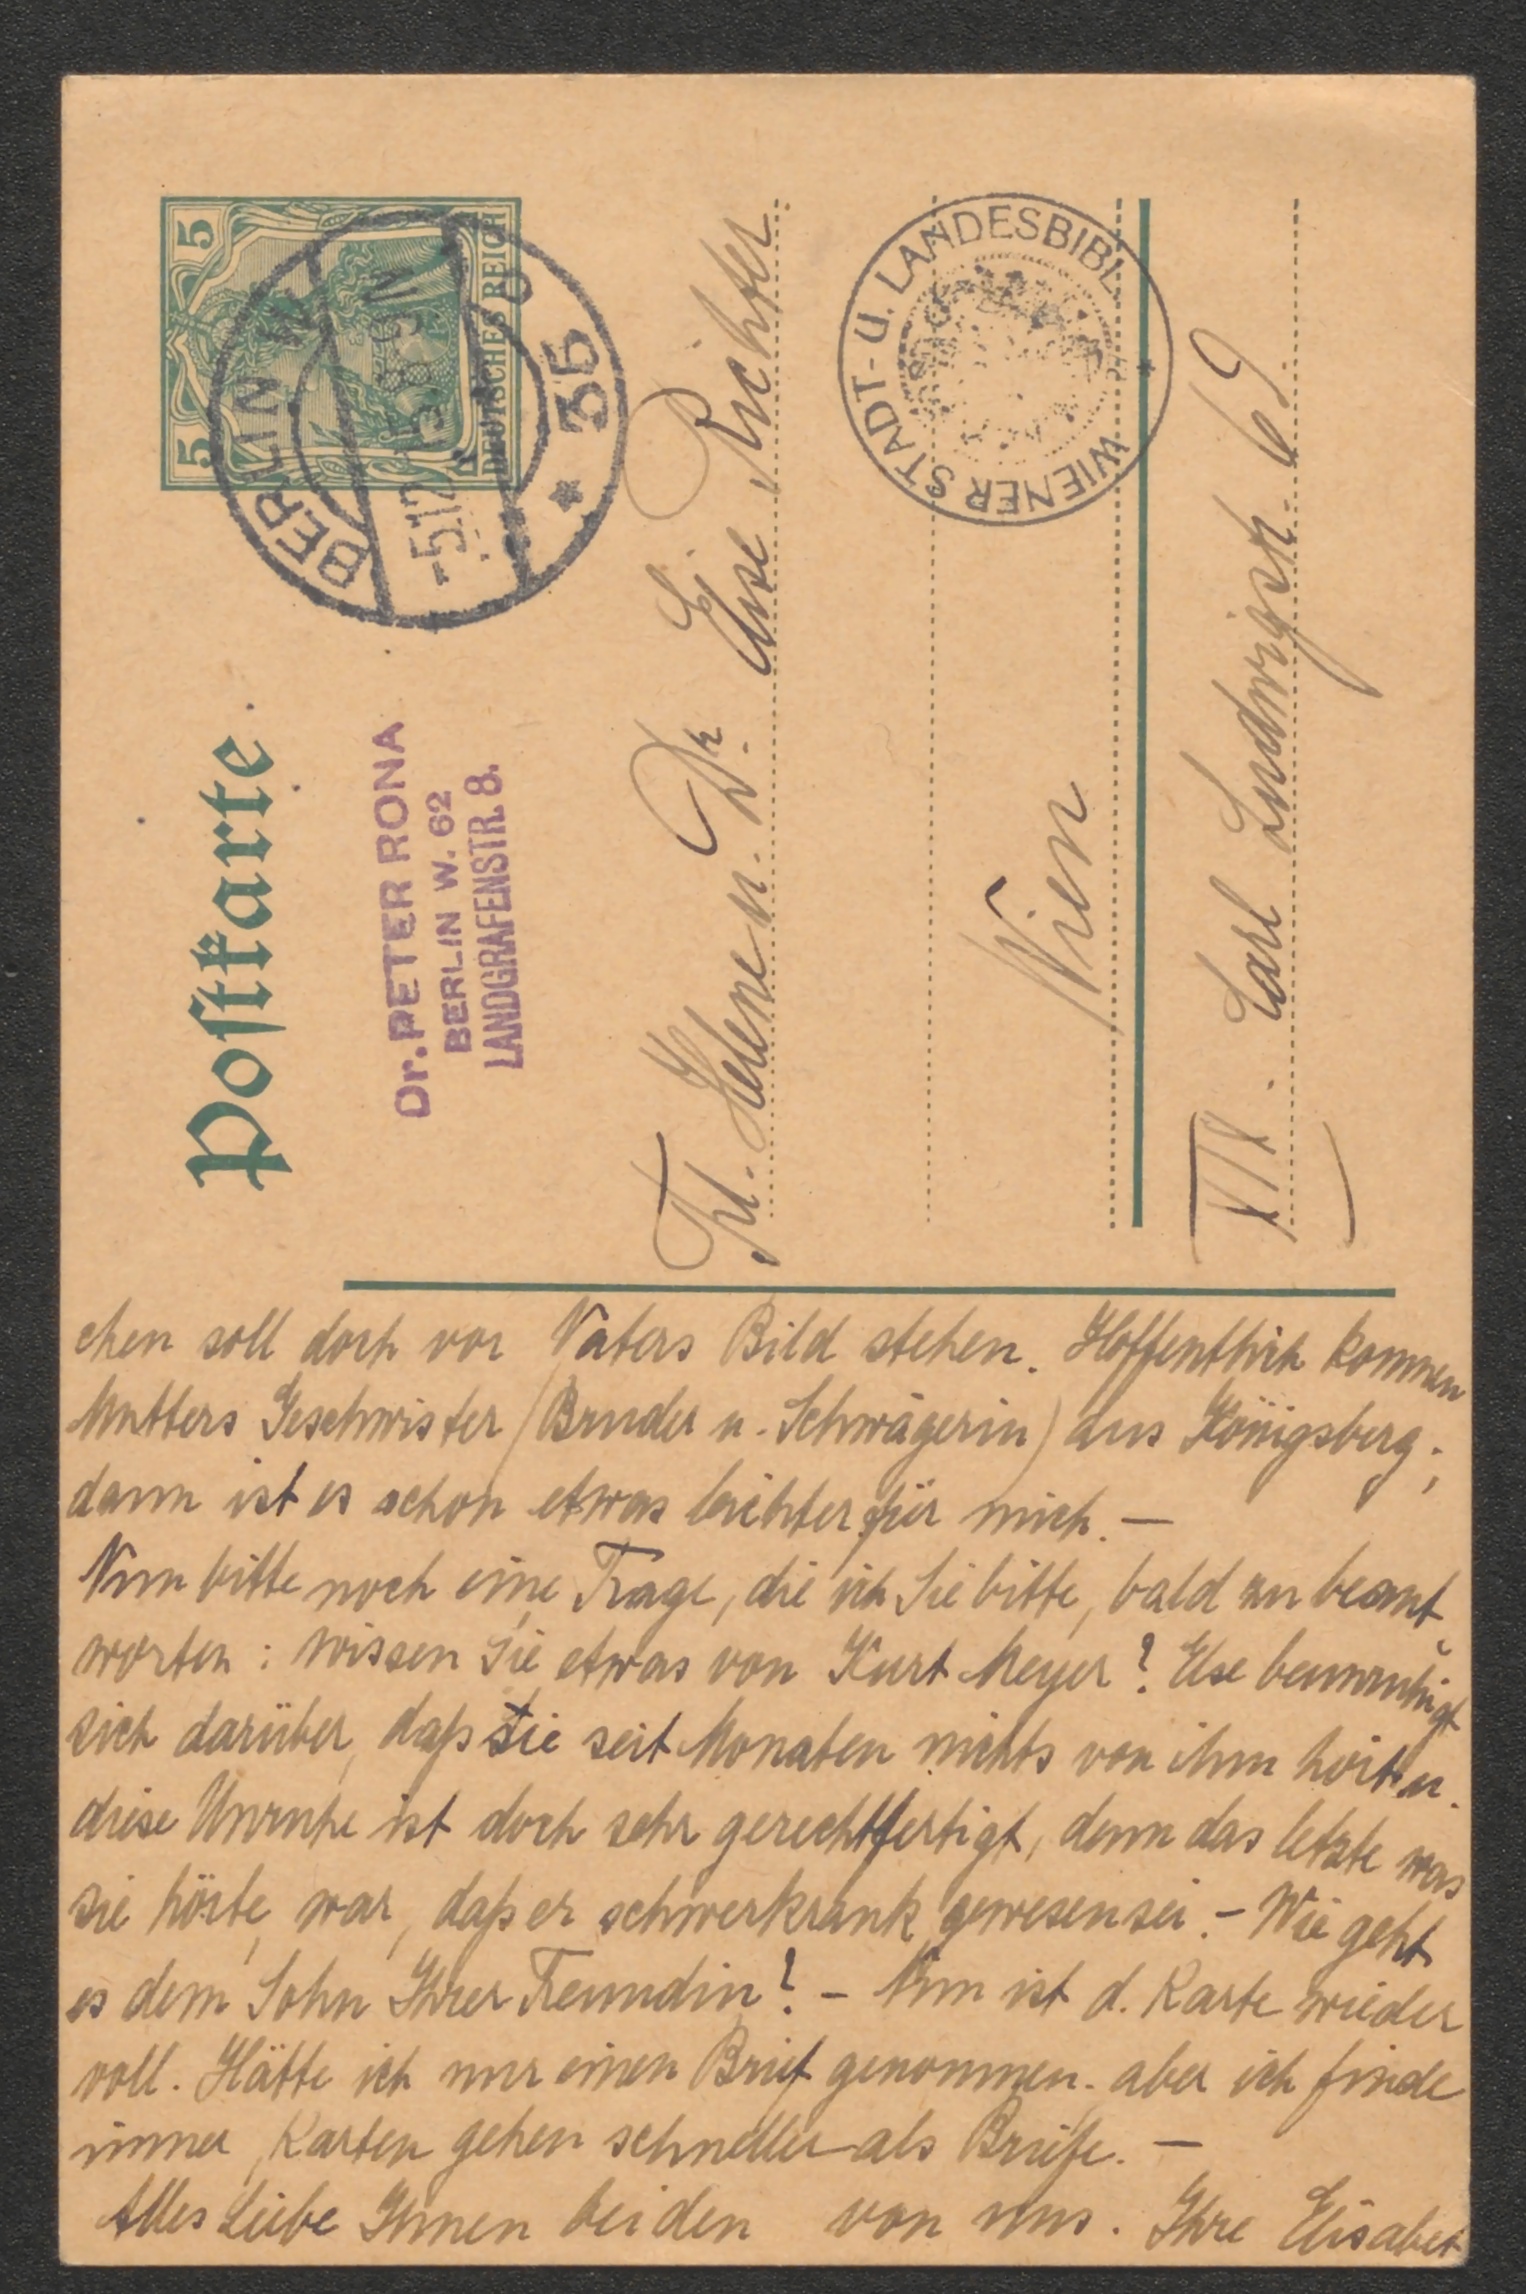 Postkarte
5 5
DEUTSCHES REICH
BERLIN W
-5.12.15.8-9N
* 35
Dr. PETER RONA
BERLIN W. 62
LANDGRAFENSTR. 8.
Frl. Helene u. Dr. Elise Richter
WIENER STADT- U. LANDESBIBL.
Wien
XIX. Carl Ludwigstr. 69.
chen soll doch vor Vaters Bild stehen. Hoffentlich kommen
Mutters Geschwister (Bruder u. Schwägerin) aus Königsberg;
dann ist es schon etwas leichter für mich. —
Nun bitte noch eine Frage, die ich Sie bitte, bald zu beant
worten: wissen Sie etwas von Kurt Meyer? Else beunruhigt
sich darüber, daß sie seit Monaten nichts von ihm hört u.
diese Unruhe ist doch sehr gerechtfertigt, denn das letzte was
sie hörte, war, daß er schwerkrank gewesen sei. – Wie geht
es dem Sohn Ihrer Freundin? – Nun ist d. Karte wieder
voll. Hätte ich nur einen Brief genommen. aber ich finde
immer, Karten gehen schneller als Briefe. —
Alles Liebe Ihnen beiden von uns. Ihre Elisabet